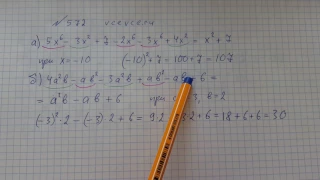 № 577
а) 5x² - 3x² + 7 - 2x⁶ - 3x⁶ + 4x² = x² + 7
при x = -10 (-10)² + 7 = 100 + 7 = 107
б) 4a²b - ab² - 3a²b + ab² - ab + 6 =
= a²b - ab + 6 при b = 2
(-3)² · 2 - (-3) · 2 + 6 = 9 · 2 + 6 = 18 + 6 + 6 = 30